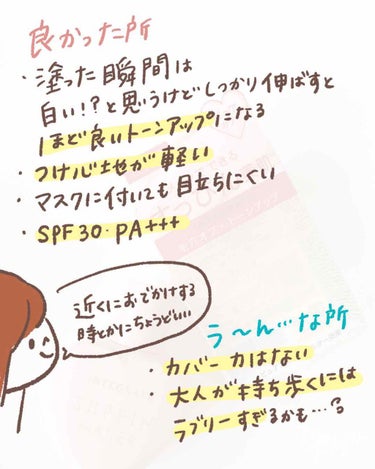 良かった所
・塗った瞬間は
白い!?と思うけどしっかり伸ばすと
ほど良いトーンアップになる
・つけ心地が軽い
・マスクに付いても目立ちにくい
・SPF30・PA+++
近くにおでかけする
時とかにちょうどいい
う〜ん…な所
・カバー力はない
・大人が持ち歩くには
ラブリーすぎるかも…